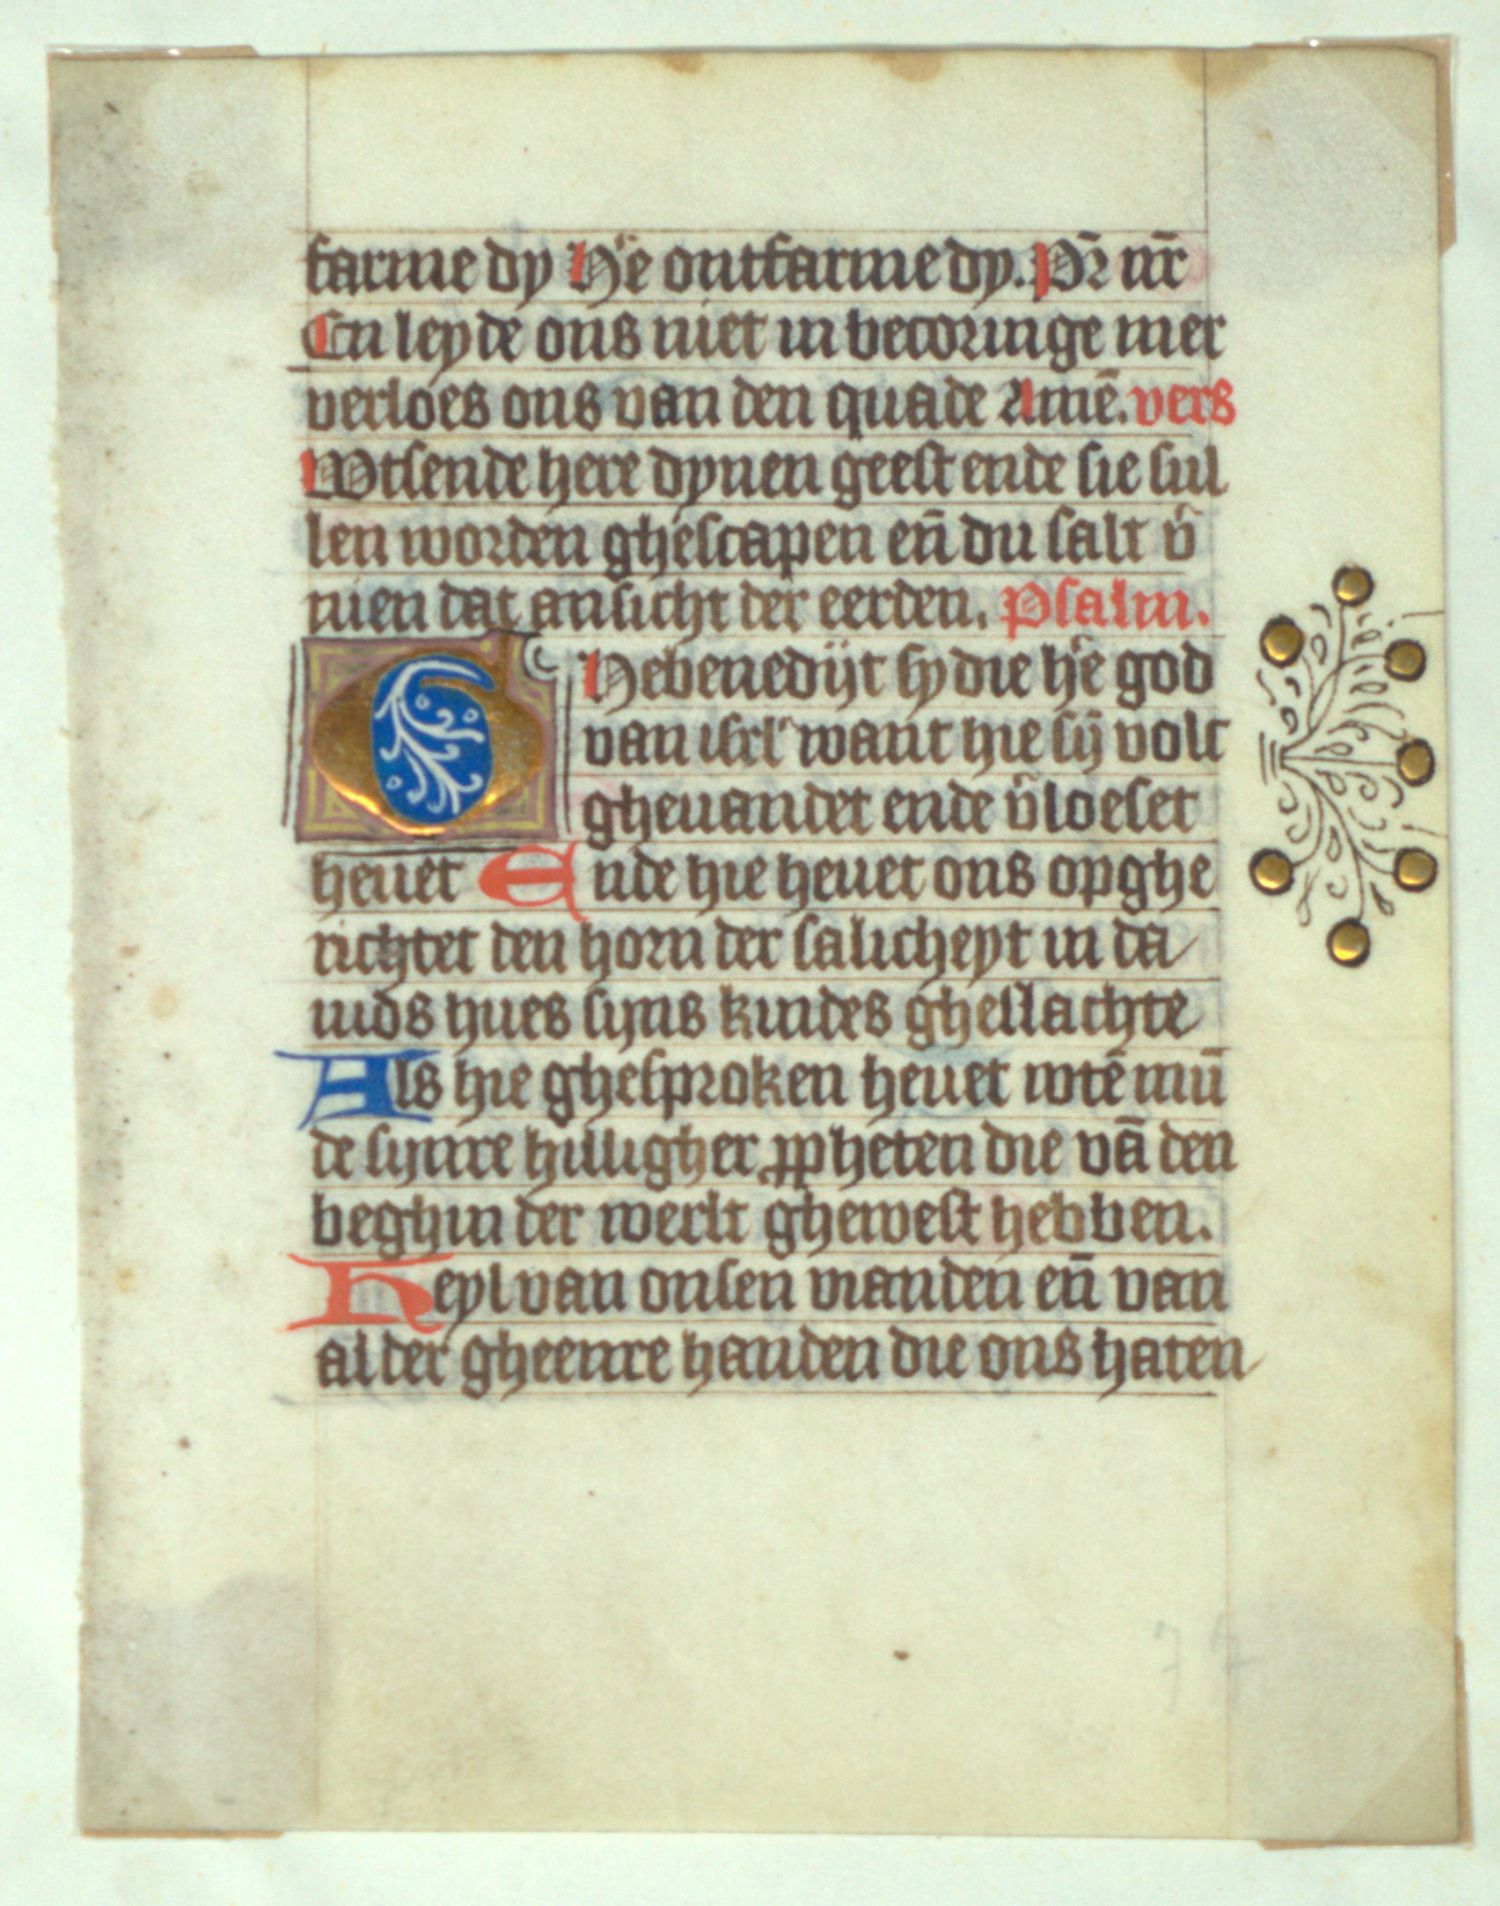 farme dy He ontfarme dy. Pr̄ nr̄
En leyde ons niet in becoringe mer
verloes ons van den quade Amē. vers
Wtsende here dynen geest ende sie sul
len worden ghescapen en̄ du salt v̄
nien dat ansicht der eerden. Psalm.
GHebenedijt sy die hẽ god
van isrl' want hie sij̄ volc
gheuandet ende v̄loeset
heuet Ende hie heuet ons opghe
richtet den horn der salicheyt in da
uids hues sijns kindes gheslachte
Als hie ghesproken heuet wtē mū
de sijnre hilligher ꝓpheten die vā den
beghin der werlt ghewest hebben.
Heyl van onsen vianden en̄ van
al der gheenre handen die ons haten
74